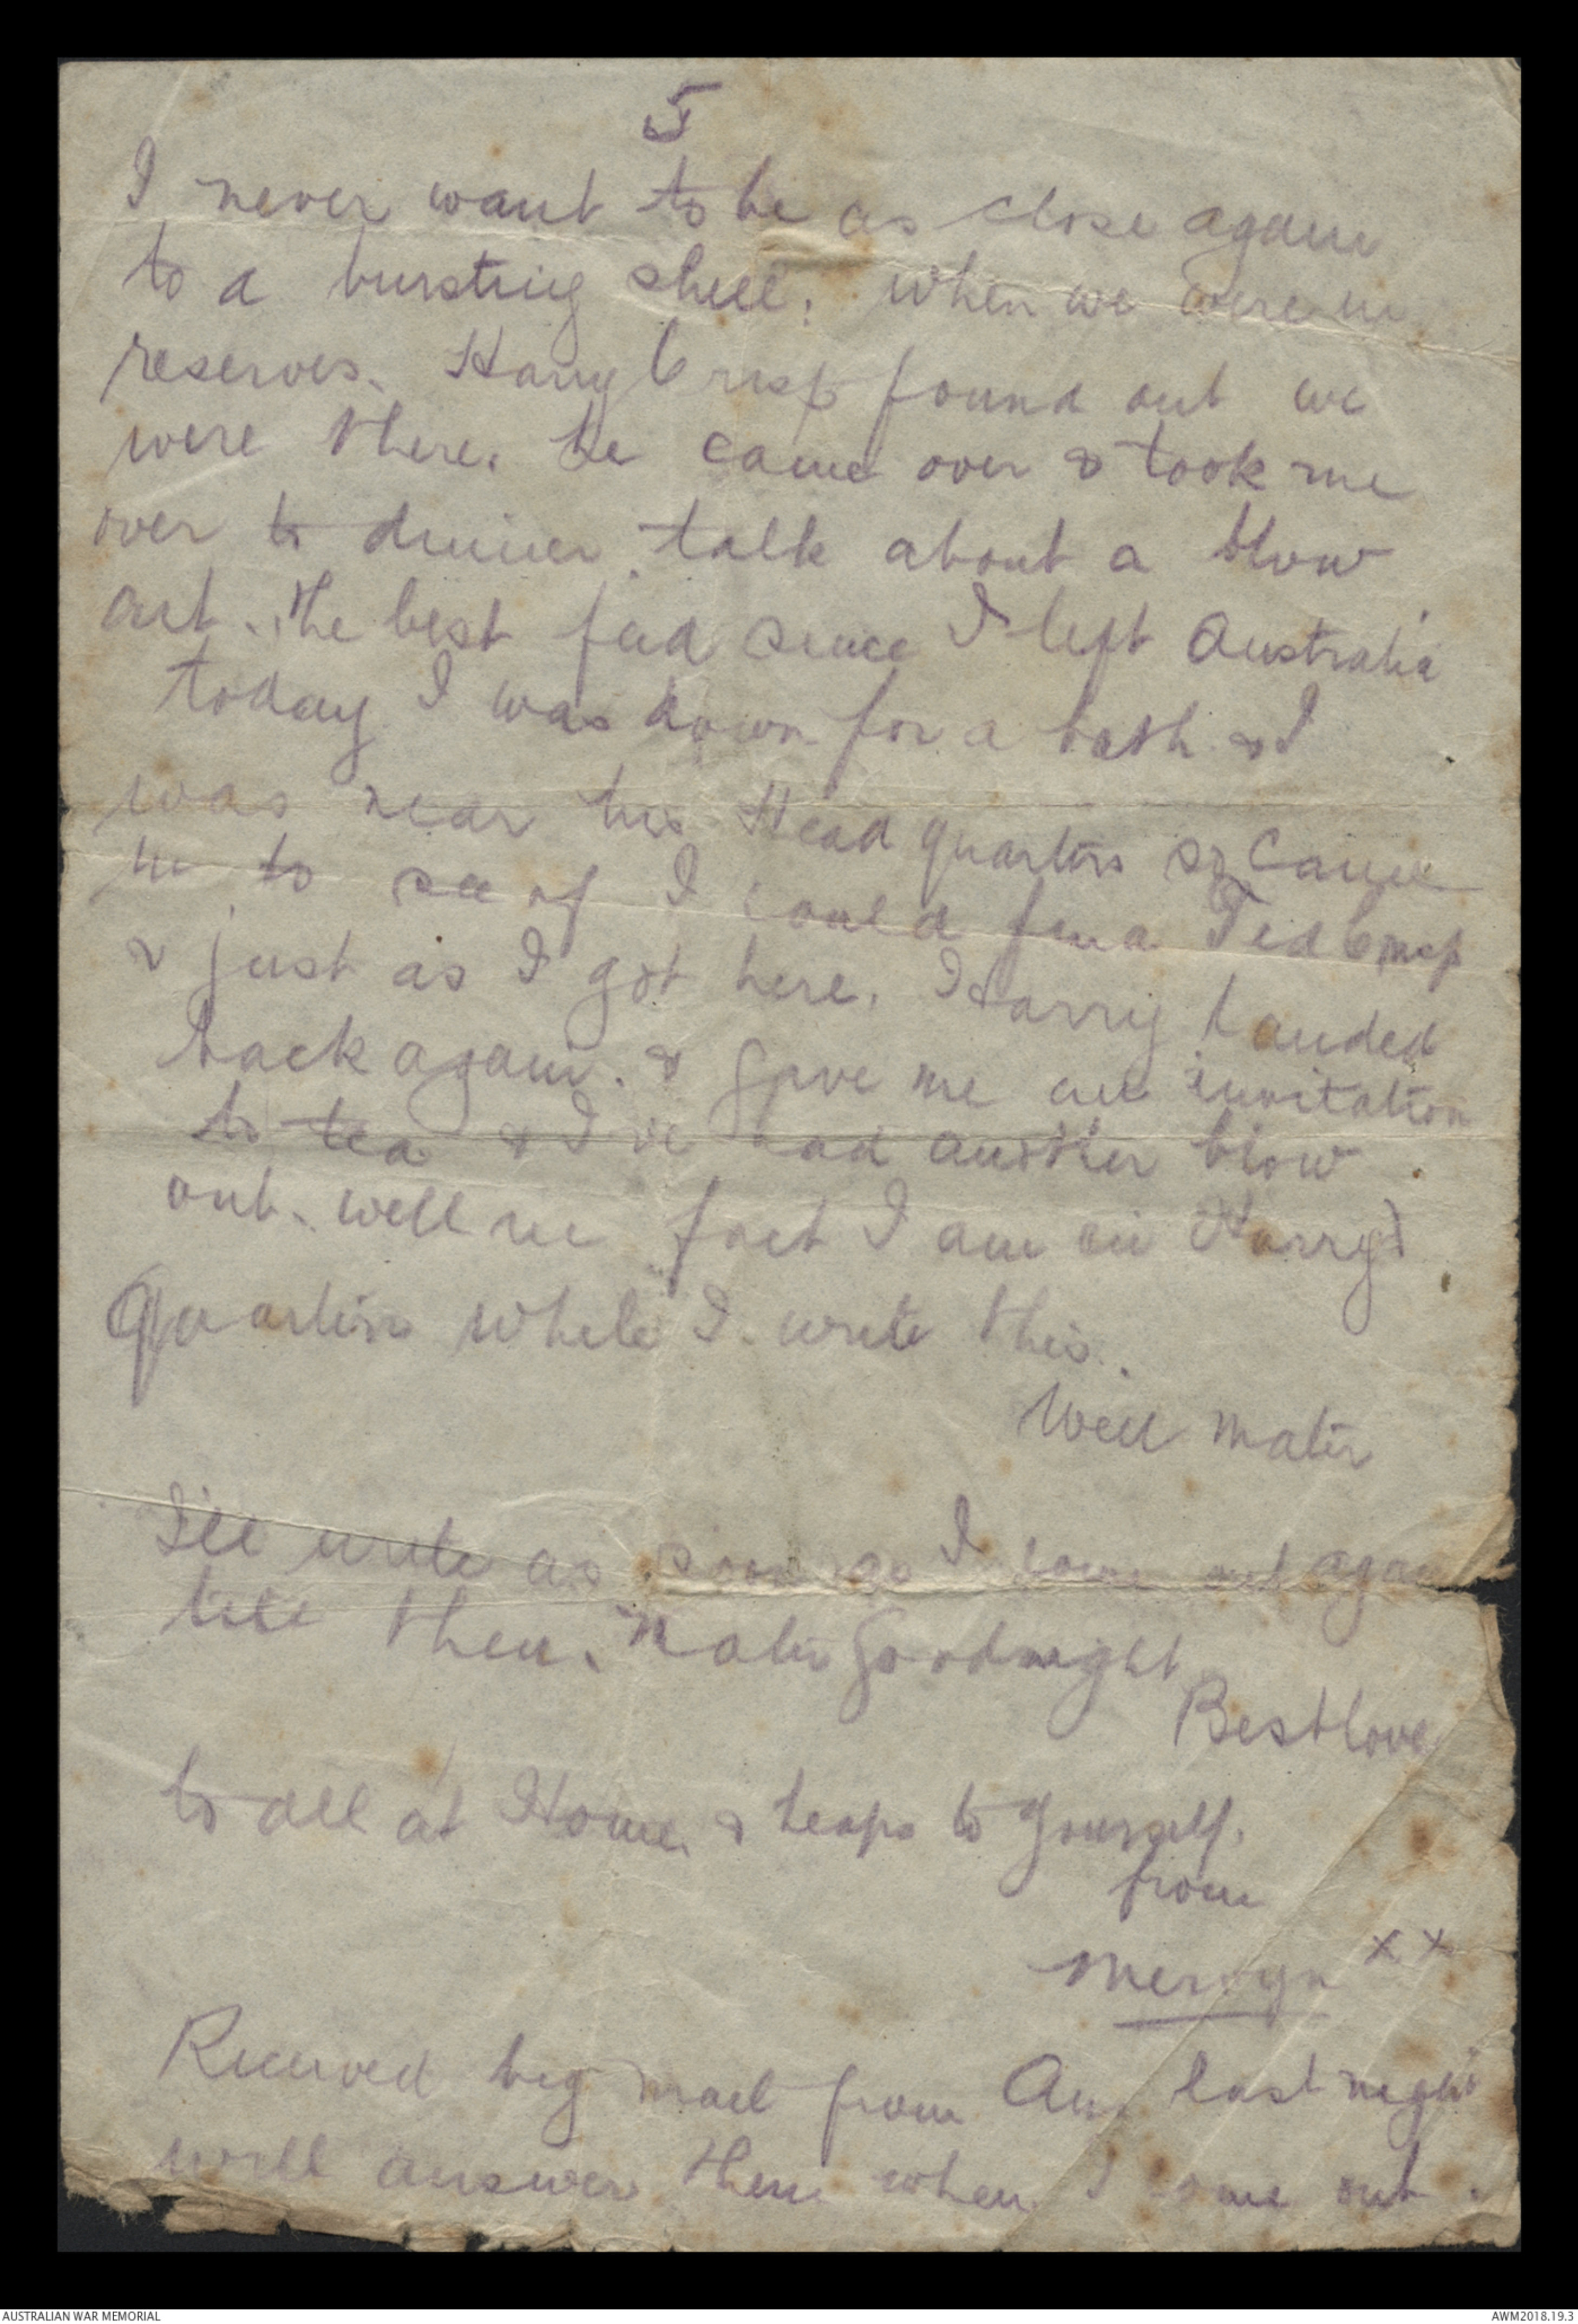 5
I never want to be as close again
to a bursting shell. When we were in
reserves. Harry Crisp found out we
were there. he came over & took me
over to dinner. talk about a blow
out. The best feed since I left Australia
today I was down for a bath & I
was near his Head quarters so came
in to see if I could find Ted Crisp
& just as I got here. Harry landed
back again. & gave me an invitation
to tea & I've had another blow
out. well in fact I am in Harry's
Quarters while I write this.
Well Mater
I'll write as soon as I come out again
till then. Mater Goodnight
Best love
to all at Home & heaps to yourself.
from
Mervyn x x
Received big mail from Aus. last night
will answer them when I come out.
AUSTRALIAN WAR MEMORIAL
AWM2018.19.3